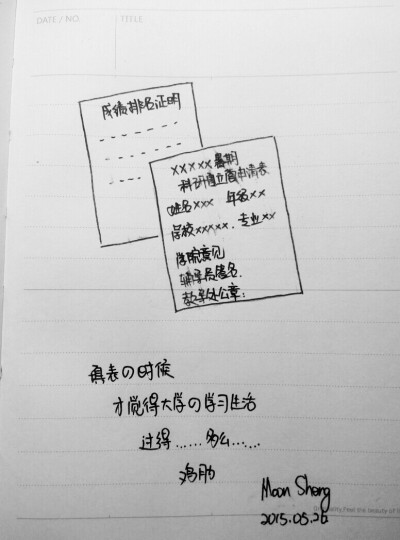 DATE / NO.
TITLE
成绩排名证明
xxxxx暑期
科研夏令营申请表
姓名xxx 年名xx
学校xxxxx. 专业xx
学院意见
辅导员签名.
教学处公章:
填表の时候
才觉得大学の学习生活
过得......多么......
鸡肋
Moon Shang
2015.05.26